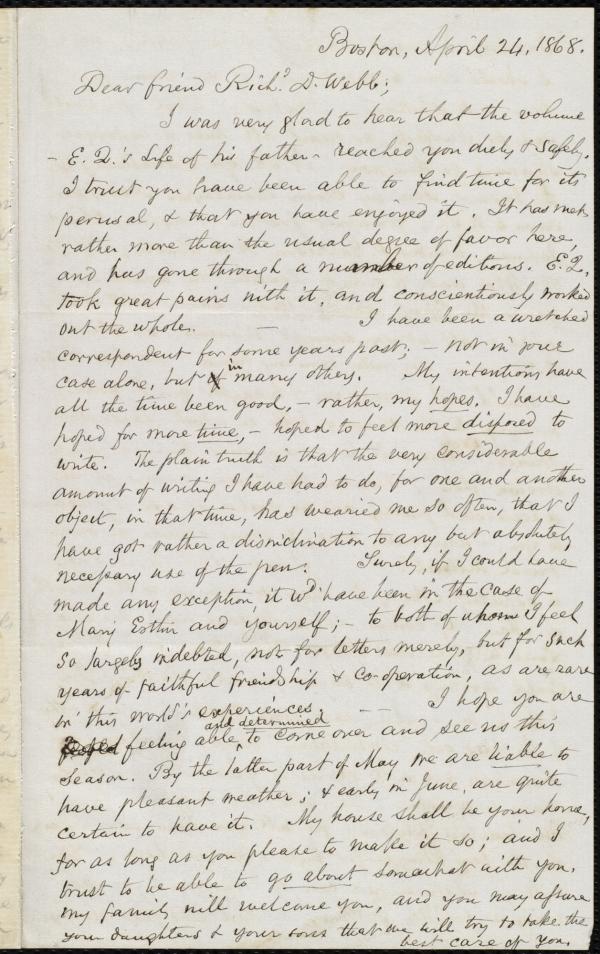 Boston, April 24, 1868.
Dear friend Richd. D. Webb;
I was very glad to hear that the volume
- E. Q.'s Life of his father - reached you duly & safely.
I trust you have been able to find time for its
perusal, & that you have enjoyed it. It has met
rather more than the usual degree of favor here,
and has gone through a number of editions. E. Q.
took great pains with it, and conscientiously worked
out the whole. — I have been a wretched
correspondent for some years past; - not in your
case alone, but in many others. My intentions have
all the time been good, - rather, my hopes. I have
hoped for more time, - hoped to feel more disposed to
write. The plain truth is that the very considerable
amount of writing I have had to do, for one and another
object, in that time, has wearied me so often, that I
have got rather a disinclination to any but absolutely
necessary use of the pen. Surely, if I could have
made any exception, it wd have been in the case of
Mary Estlin and yourself; - to both of whom I feel
so largely indebted, not for letters merely, but for such
years of faithful friendship & co-operation, as are rare
in this world's experiences. — I hope you are
feeling able, and determined to come over and see us this
season. By the latter part of May we are liable to
have pleasant weather; & early in June, are quite
certain to have it. My house shall be your home,
for as long as you please to make it so; and I
trust to be able to go about somewhat with you.
My family will welcome you, and you may assure
your daughters & your sons that we will try to take the
best care of you.